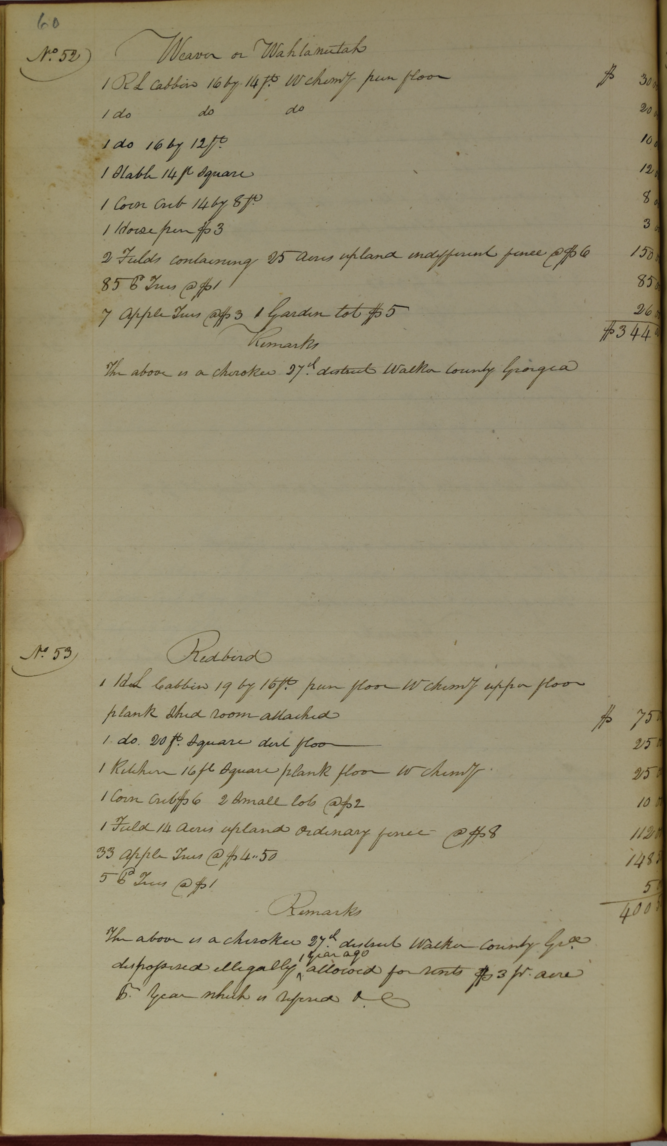 60
No. 52
Weaver or Wahlanutah
1 R L Cabbin 16 by 14 ft W chimy pun floor $ 30
1 do do do 20
1 do 16 by 12 ft 10
1 Stable 14 ft Square 12
1 Corn Crib 14 by 8 ft 8
1 Horse pen $3 3
2 Fields containing 25 Acres upland indifferent fence @ $6 150
85 P Trees @ $1 85
7 Apple Trees @ $3 1 Garden lot $5 26
$344
Remarks
The above is a cherokee 27th district Walker County Georgia
No. 53
Redbird
1 Hd L Cabbin 19 by 16 ft pun floor W chimy upper floor
plank Shed room attached $ 75
1 do 20 ft Square dirt floor 25
1 Kitchen 16 ft Square plank floor W chimy 25
1 Corn Crib $6 2 Small lots @ $2 10
1 Field 14 Acres upland ordinary fence @ $8 112
33 Apple Trees @ $4-50 148
5 P Trees @ $1 5
400
Remarks
The above is a cherokee 27th district Walker County Goa
dispossessed illegally ^ 1 year ago allowed for rents $3 pr. acre
Pr year which is